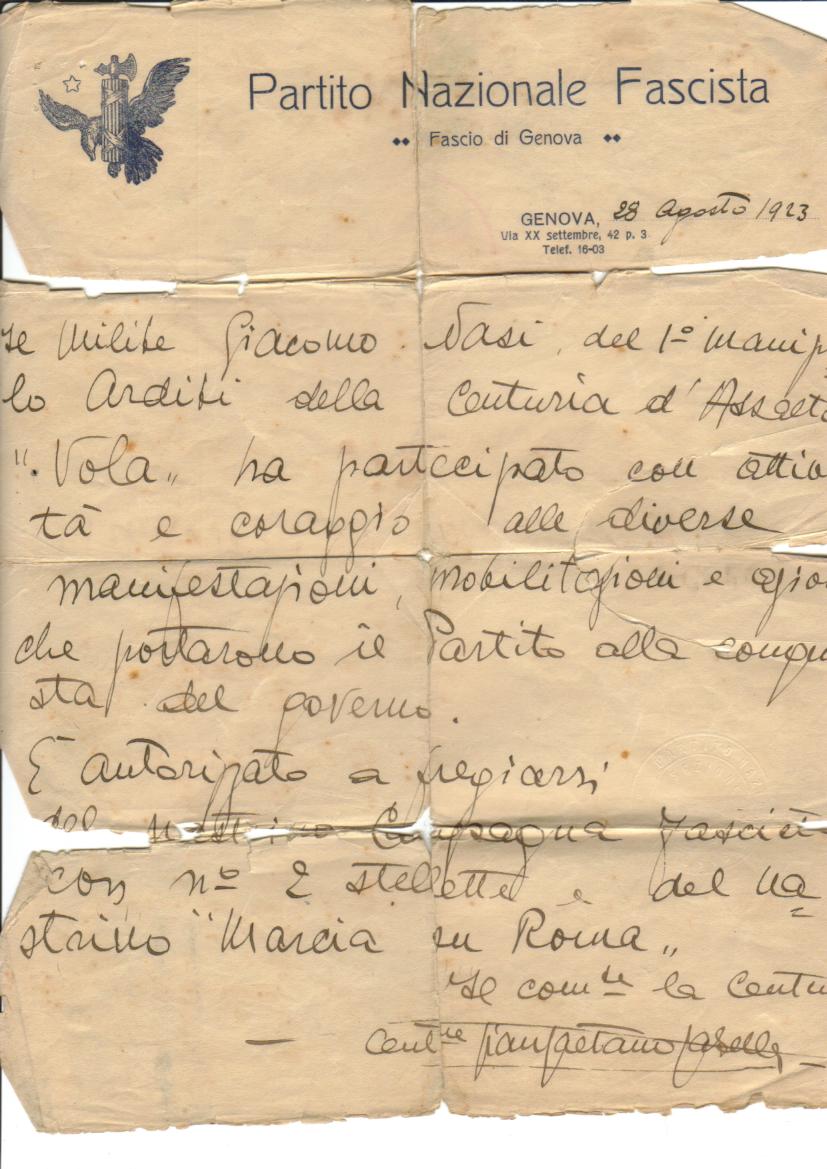 Partito Nazionale Fascista
Fascio di Genova
GENOVA, 28 Agosto 1923
Via XX settembre, 42 p. 3
Telef. 16-03
Il Milite Giacomo Nasi, del 1º Manip
lo Arditi della Centuria d'Assalto
"Vola" ha partecipato con attiv
tà e coraggio alle diverse
manifestazioni, mobilitazioni e azion
che portarono il Partito alla conqu
sta del governo.
È autorizzato a fregiarsi
del nastrino Campagna Fascist
con nº 2 stellette e del na
strino "Marcia su Roma"
Il comte la Centu
Centne